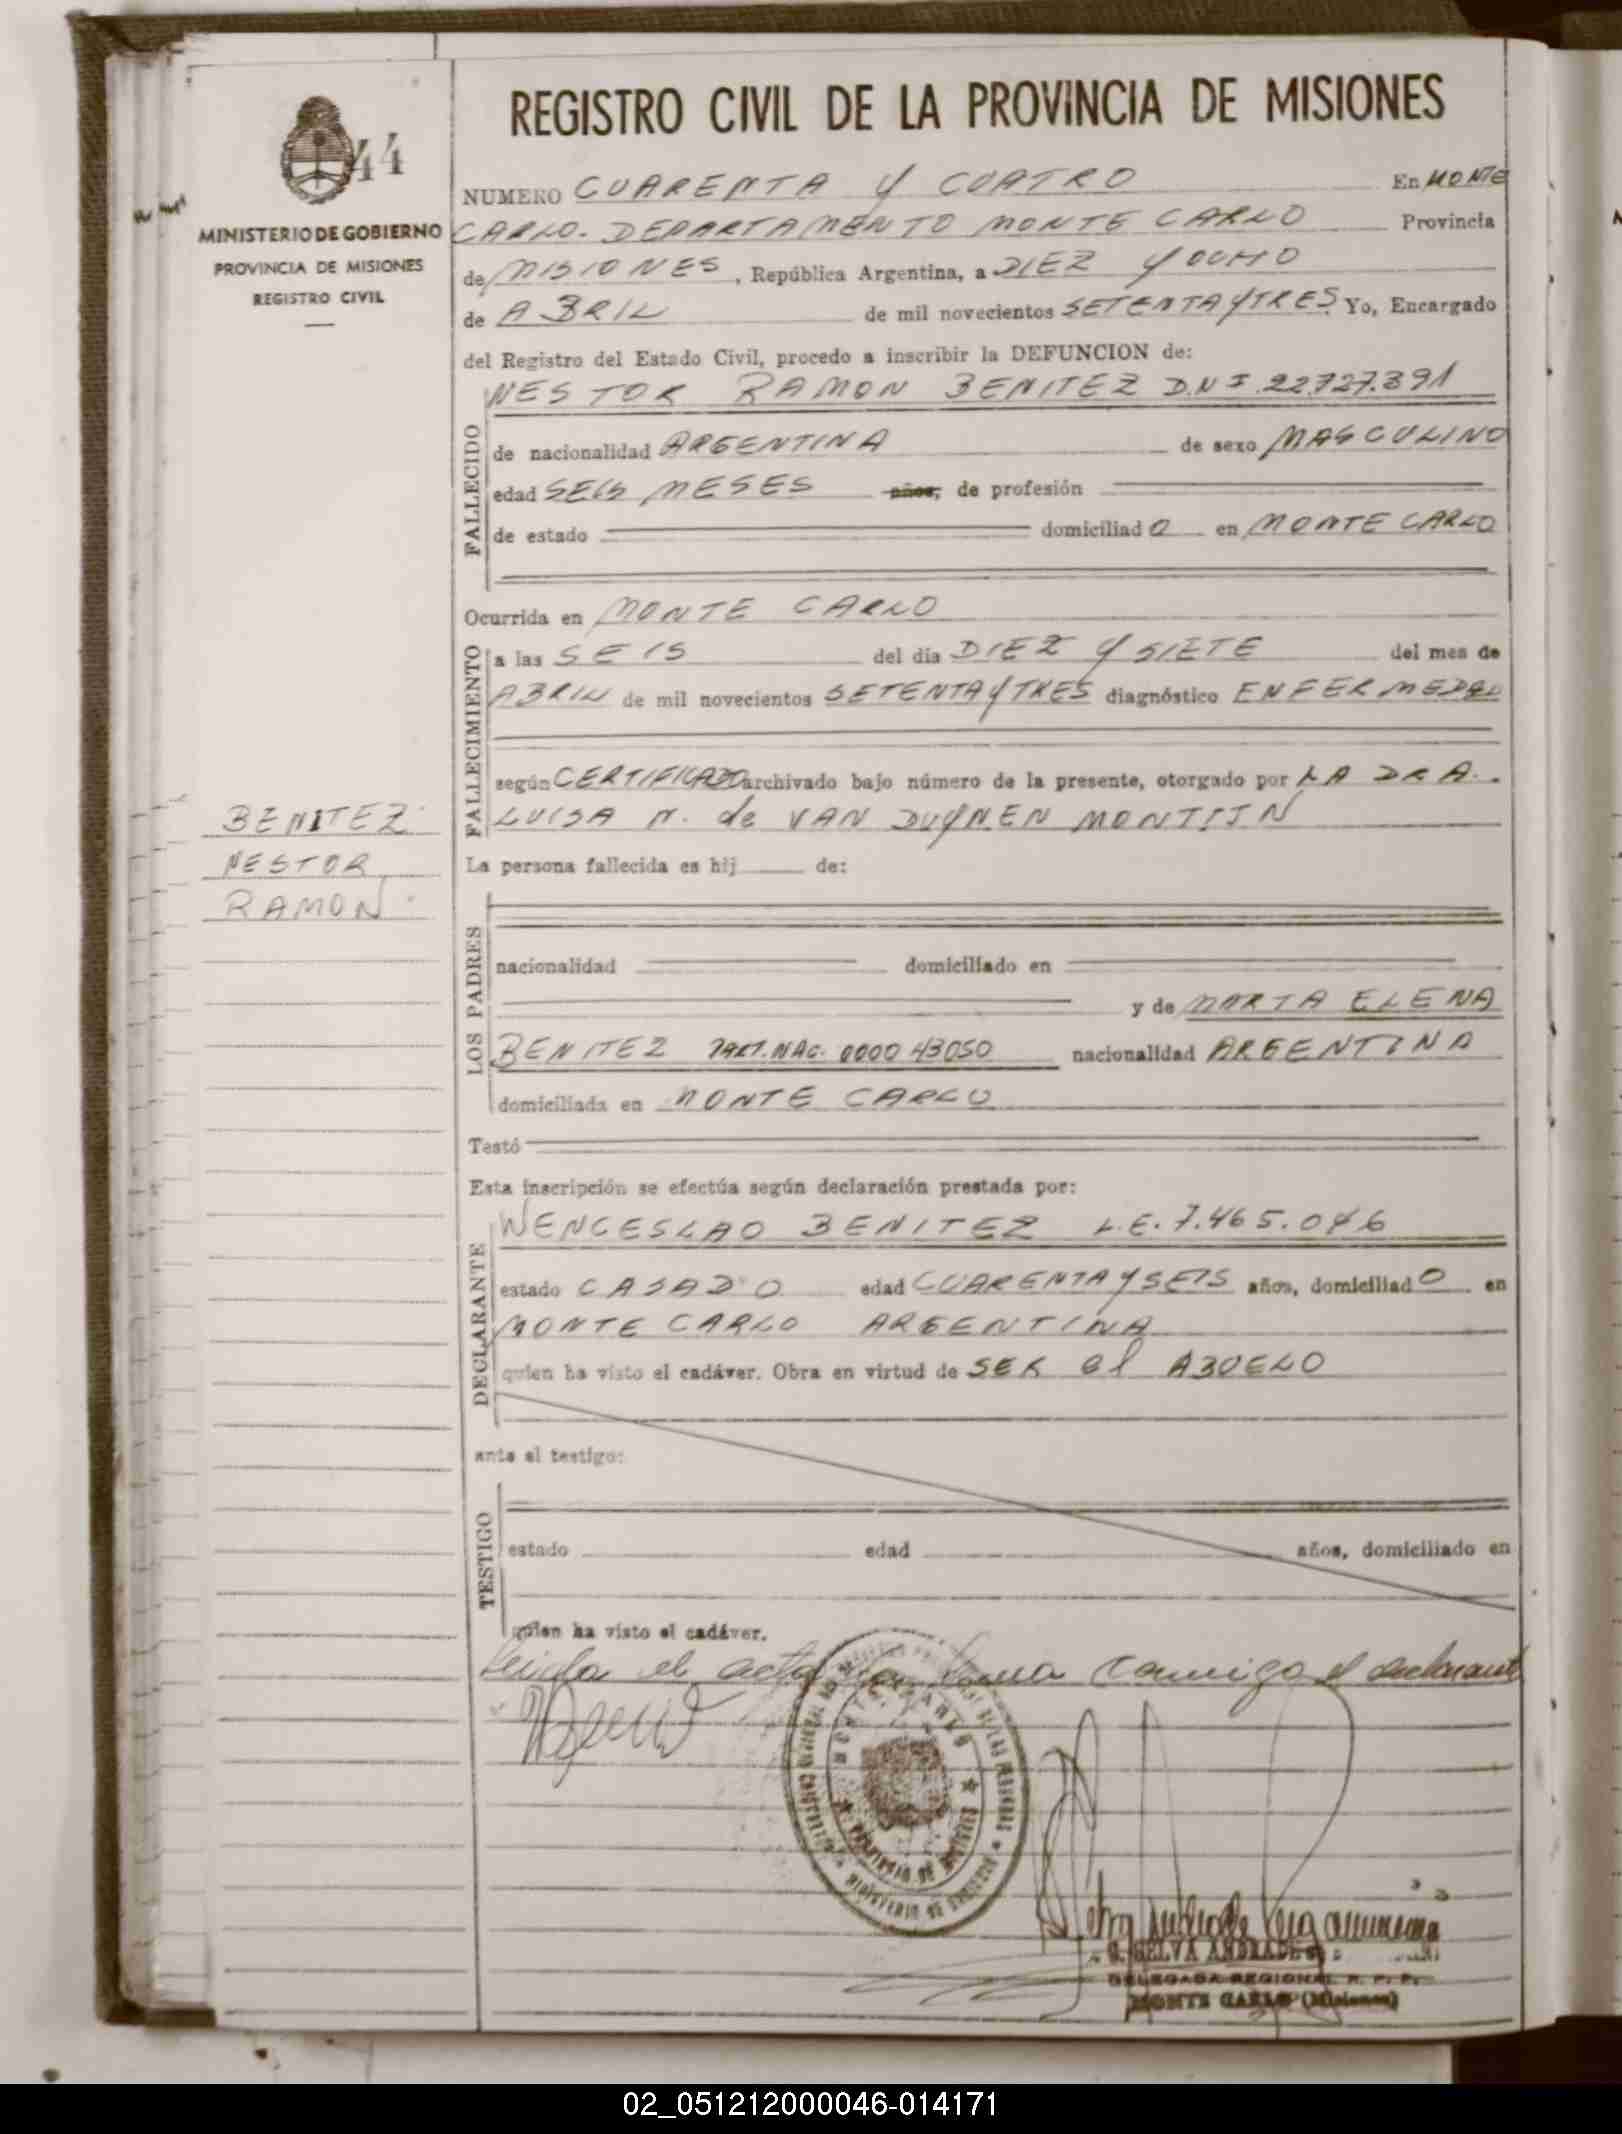 REGISTRO CIVIL DE LA PROVINCIA DE MISIONES
44
MINISTERIO DE GOBIERNO
PROVINCIA DE MISIONES
REGISTRO CIVIL
NUMERO CUARENTA Y CUATRO En MONTE
CARLO. DEPARTAMENTO MONTE CARLO Provincia
de MISIONES, República Argentina, a DIEZ Y OCHO
de ABRIL de mil novecientos SETENTA Y TRES Yo, Encargado
del Registro del Estado Civil, procedo a inscribir la DEFUNCION de:
NESTOR RAMON BENITEZ D.N.I. 22.727.391
FALLECIDO
de nacionalidad ARGENTINA de sexo MASCULINO
edad SEIS MESES años, de profesión
de estado domiciliado en MONTE CARLO
Ocurrida en MONTE CARLO
FALLECIMIENTO
a las SEIS del día DIEZ Y SIETE del mes de
ABRIL de mil novecientos SETENTA Y TRES diagnóstico ENFERMEDAD
según CERTIFICADO archivado bajo número de la presente, otorgado por LA DRA.
LUISA N. de VAN DUYNEN MONTIJN
BENITEZ
NESTOR
RAMON
La persona fallecida es hij de:
LOS PADRES
nacionalidad domiciliado en
y de MARTA ELENA
BENITEZ PART.NAC. 0000 43050 nacionalidad ARGENTINA
domiciliada en MONTE CARLO
Testó
Esta inscripción se efectúa según declaración prestada por:
DECLARANTE
WENCESLAO BENITEZ L.E. 7.465.046
estado CASADO edad CUARENTA Y SEIS años, domiciliado en
MONTE CARLO ARGENTINA
quien ha visto el cadáver. Obra en virtud de SER el ABUELO
ante el testigo:
TESTIGO
estado edad años, domiciliado en
quien ha visto el cadáver.
Leida el acta la firma conmigo el declarante
MONTE CARLO
PROVINCIA DE MISIONES
MINISTERIO DE GOBIERNO
G. SELVA ANDRADE
DELEGADA REGIONAL R. P. P.
MONTE CARLO (Misiones)
02_051212000046-014171